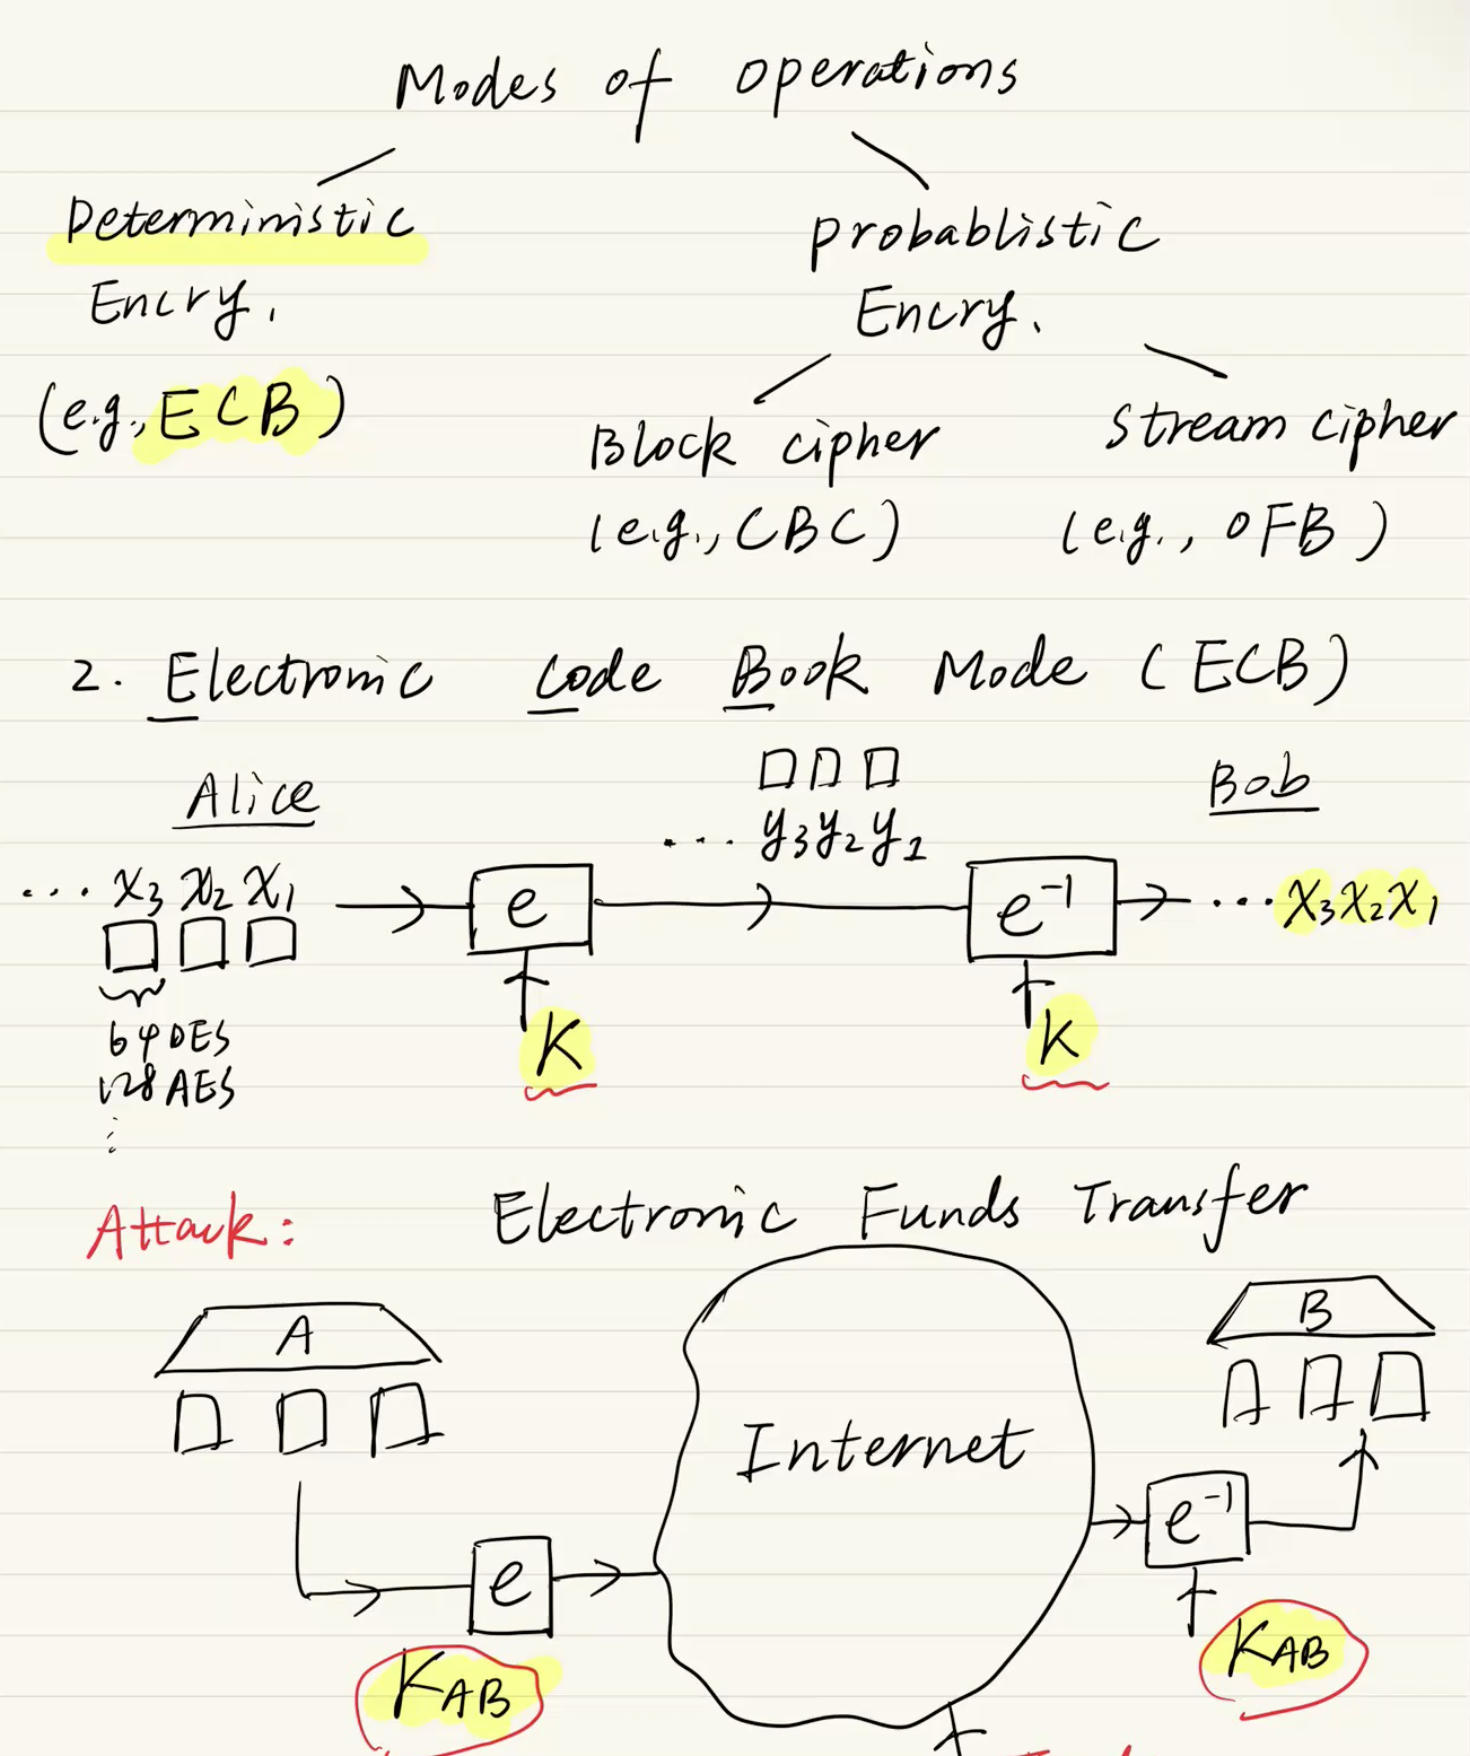 Modes of operations
Deterministic
Encry.
(e.g., ECB)
probablistic
Encry.
Block cipher
(e.g., CBC)
Stream cipher
(e.g., OFB)
2. Electronic Code Book Mode (ECB)
Alice
Bob
... y3 y2 y1
... x3 x2 x1
e
e⁻¹
... x3 x2 x1
64 DES
128 AES
⋮
K
K
Attack:
Electronic Funds Transfer
A
B
Internet
e
e⁻¹
KAB
KAB